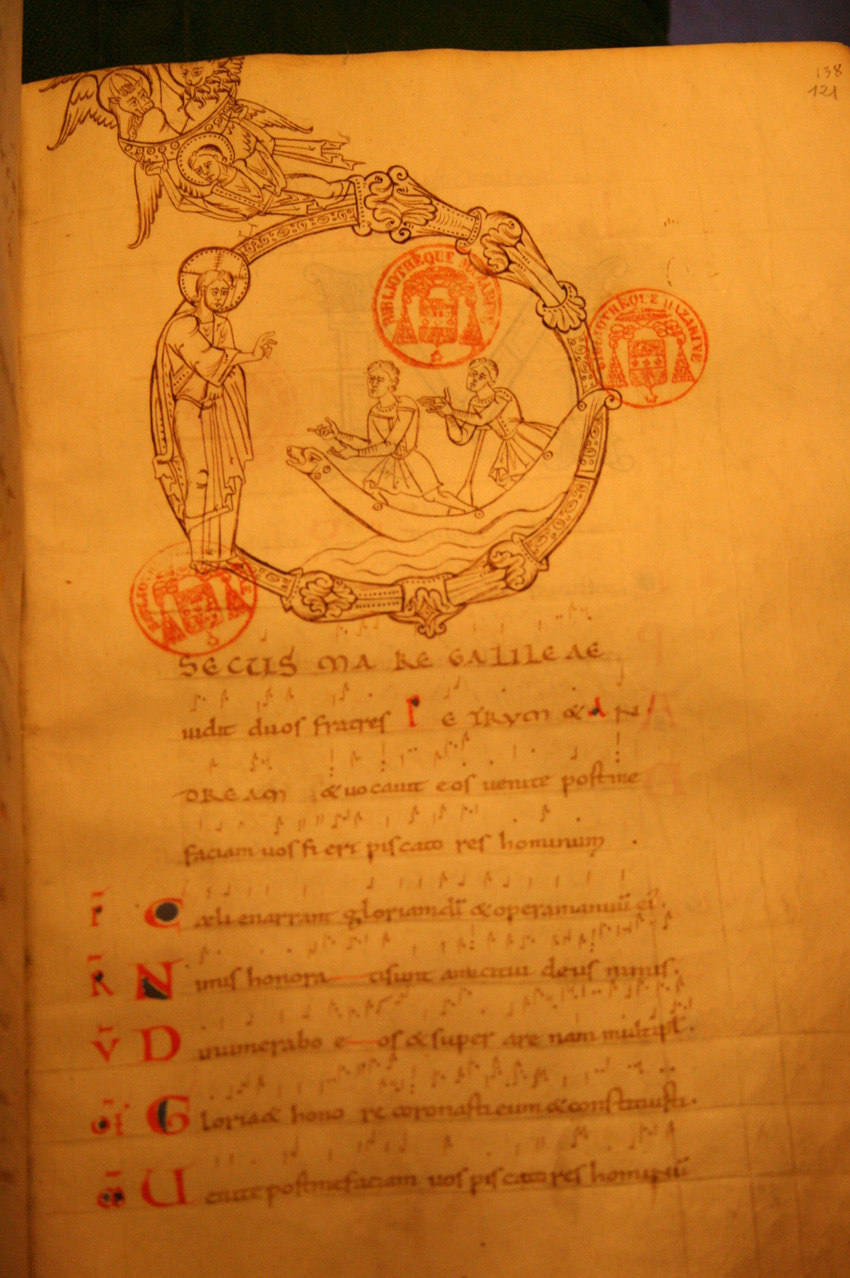 138
121
BIBLIOTHEQUE MAZARINE
BIBLIOTHEQUE MAZARINE
D
SECUS MARE GALILEAE
uidit duos fratres PETRVM & AN
DREAM & uocauit eos uenite postme
faciam uos fieri piscatores hominum .
C aeli enarrant gloriam di & opera manuu ei.
R N imis honorati sunt amici tui deus nimis.
V D inumerabo eos & super arenam multipl.
of G loria & honore coronasti eum & constituisti.
U enite postme faciam uos piscatores hominu